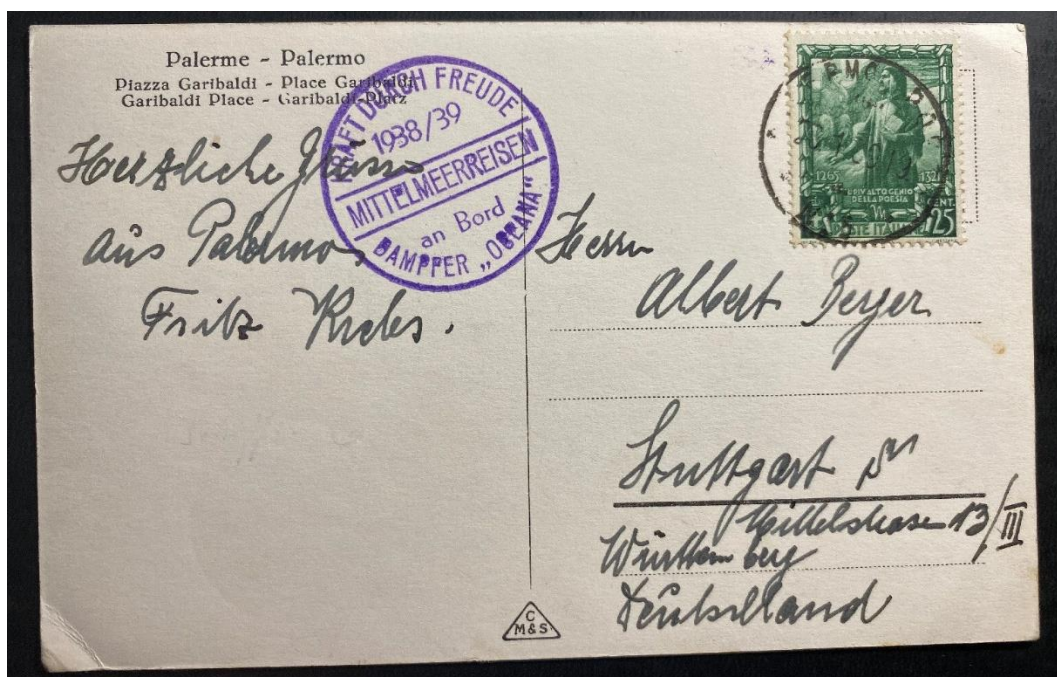 Palerme - Palermo
Piazza Garibaldi - Place Garibaldi
Garibaldi Place - Garibaldi-Platz
KRAFT DURCH FREUDE
1938/39
MITTELMEERREISEN
an Bord
DAMPFER „OCEANA“
Herzliche Grüsse
aus Palermo,
Fritz Krebs.
1265
1321
DELLA POESIA
POSTE ITALIANE
CENT.
25
Herrn
Albert Berger
Stuttgart
Mittelstrasse 13/III
Württemberg
Deutschland
C
M&S.